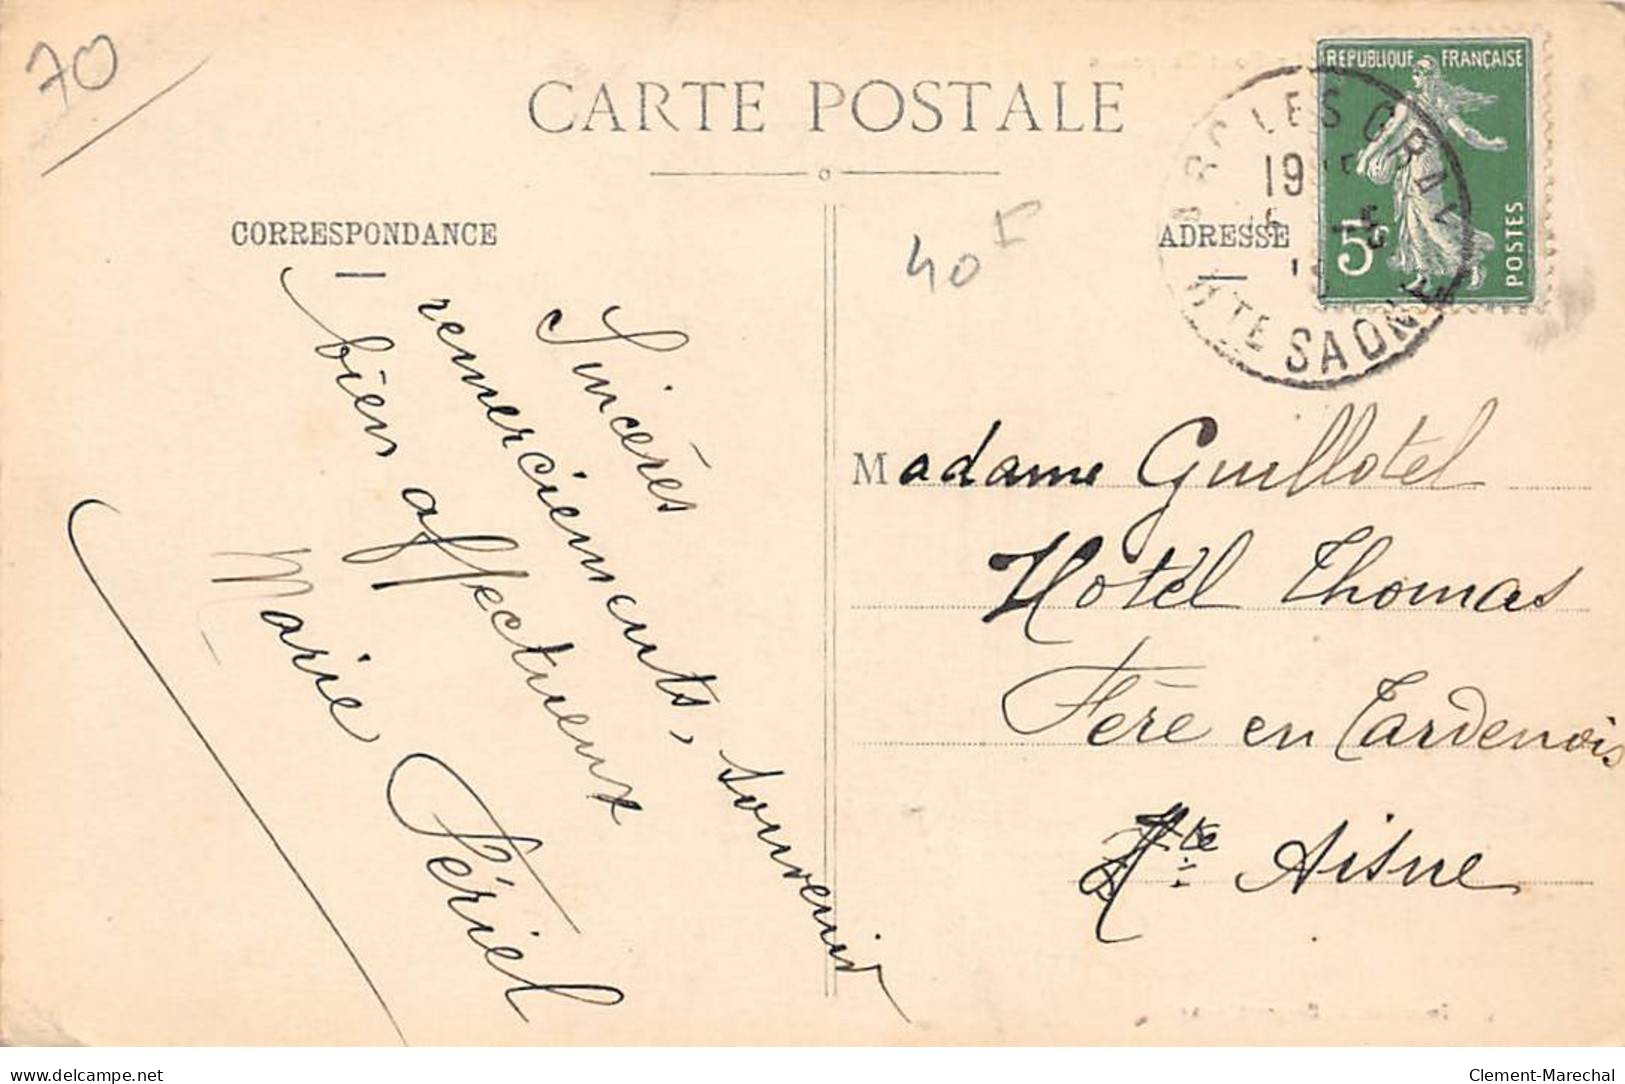 70
CARTE POSTALE
CORRESPONDANCE
ADRESSE
40F
RÉPUBLIQUE FRANÇAISE
5c
POSTES
ARC LES GRAY
19
HTE SAONE
Sincères
remerciements, souvenir
bien affectueux
Marie Fériel
Madame Guillotel
Hotêl Thomas
Fère en Tardenois
Hte Aisne
delcampe.net
Clement-Marechal